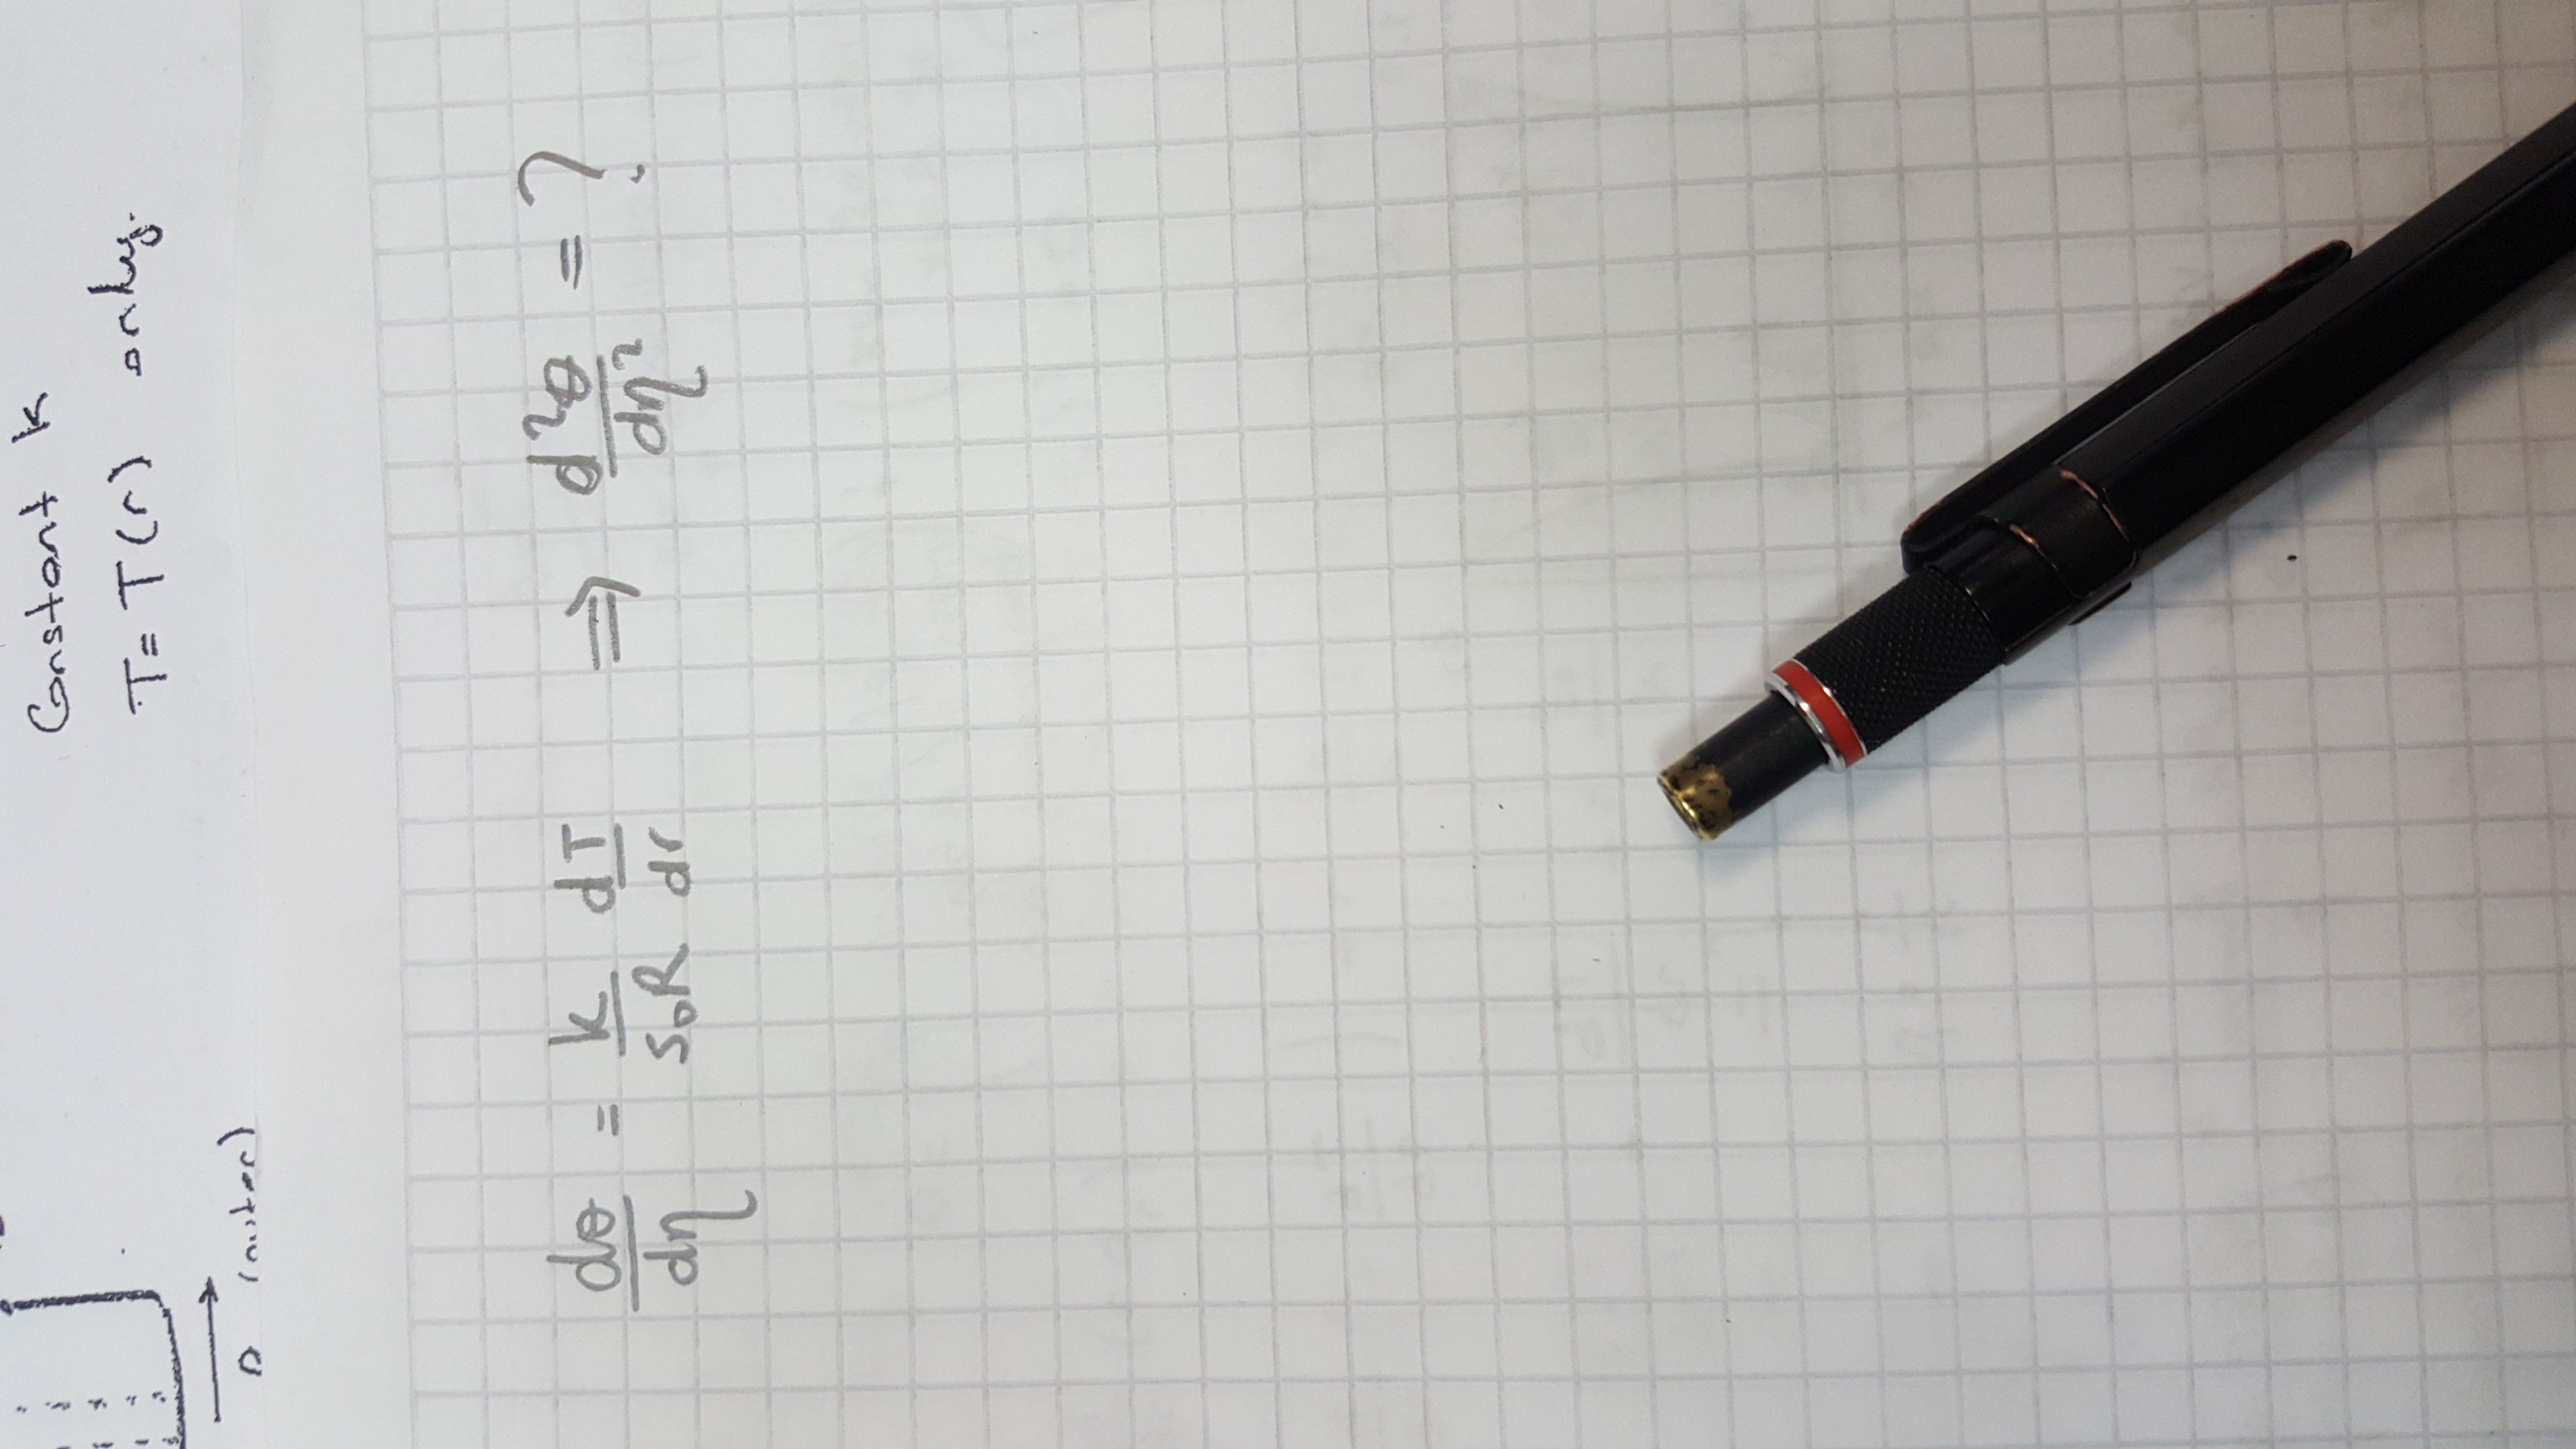 Constant k
T = T(r) only.
dθ/dη = k/S₀R dT/dr ⇒ d²θ/dη² = ?